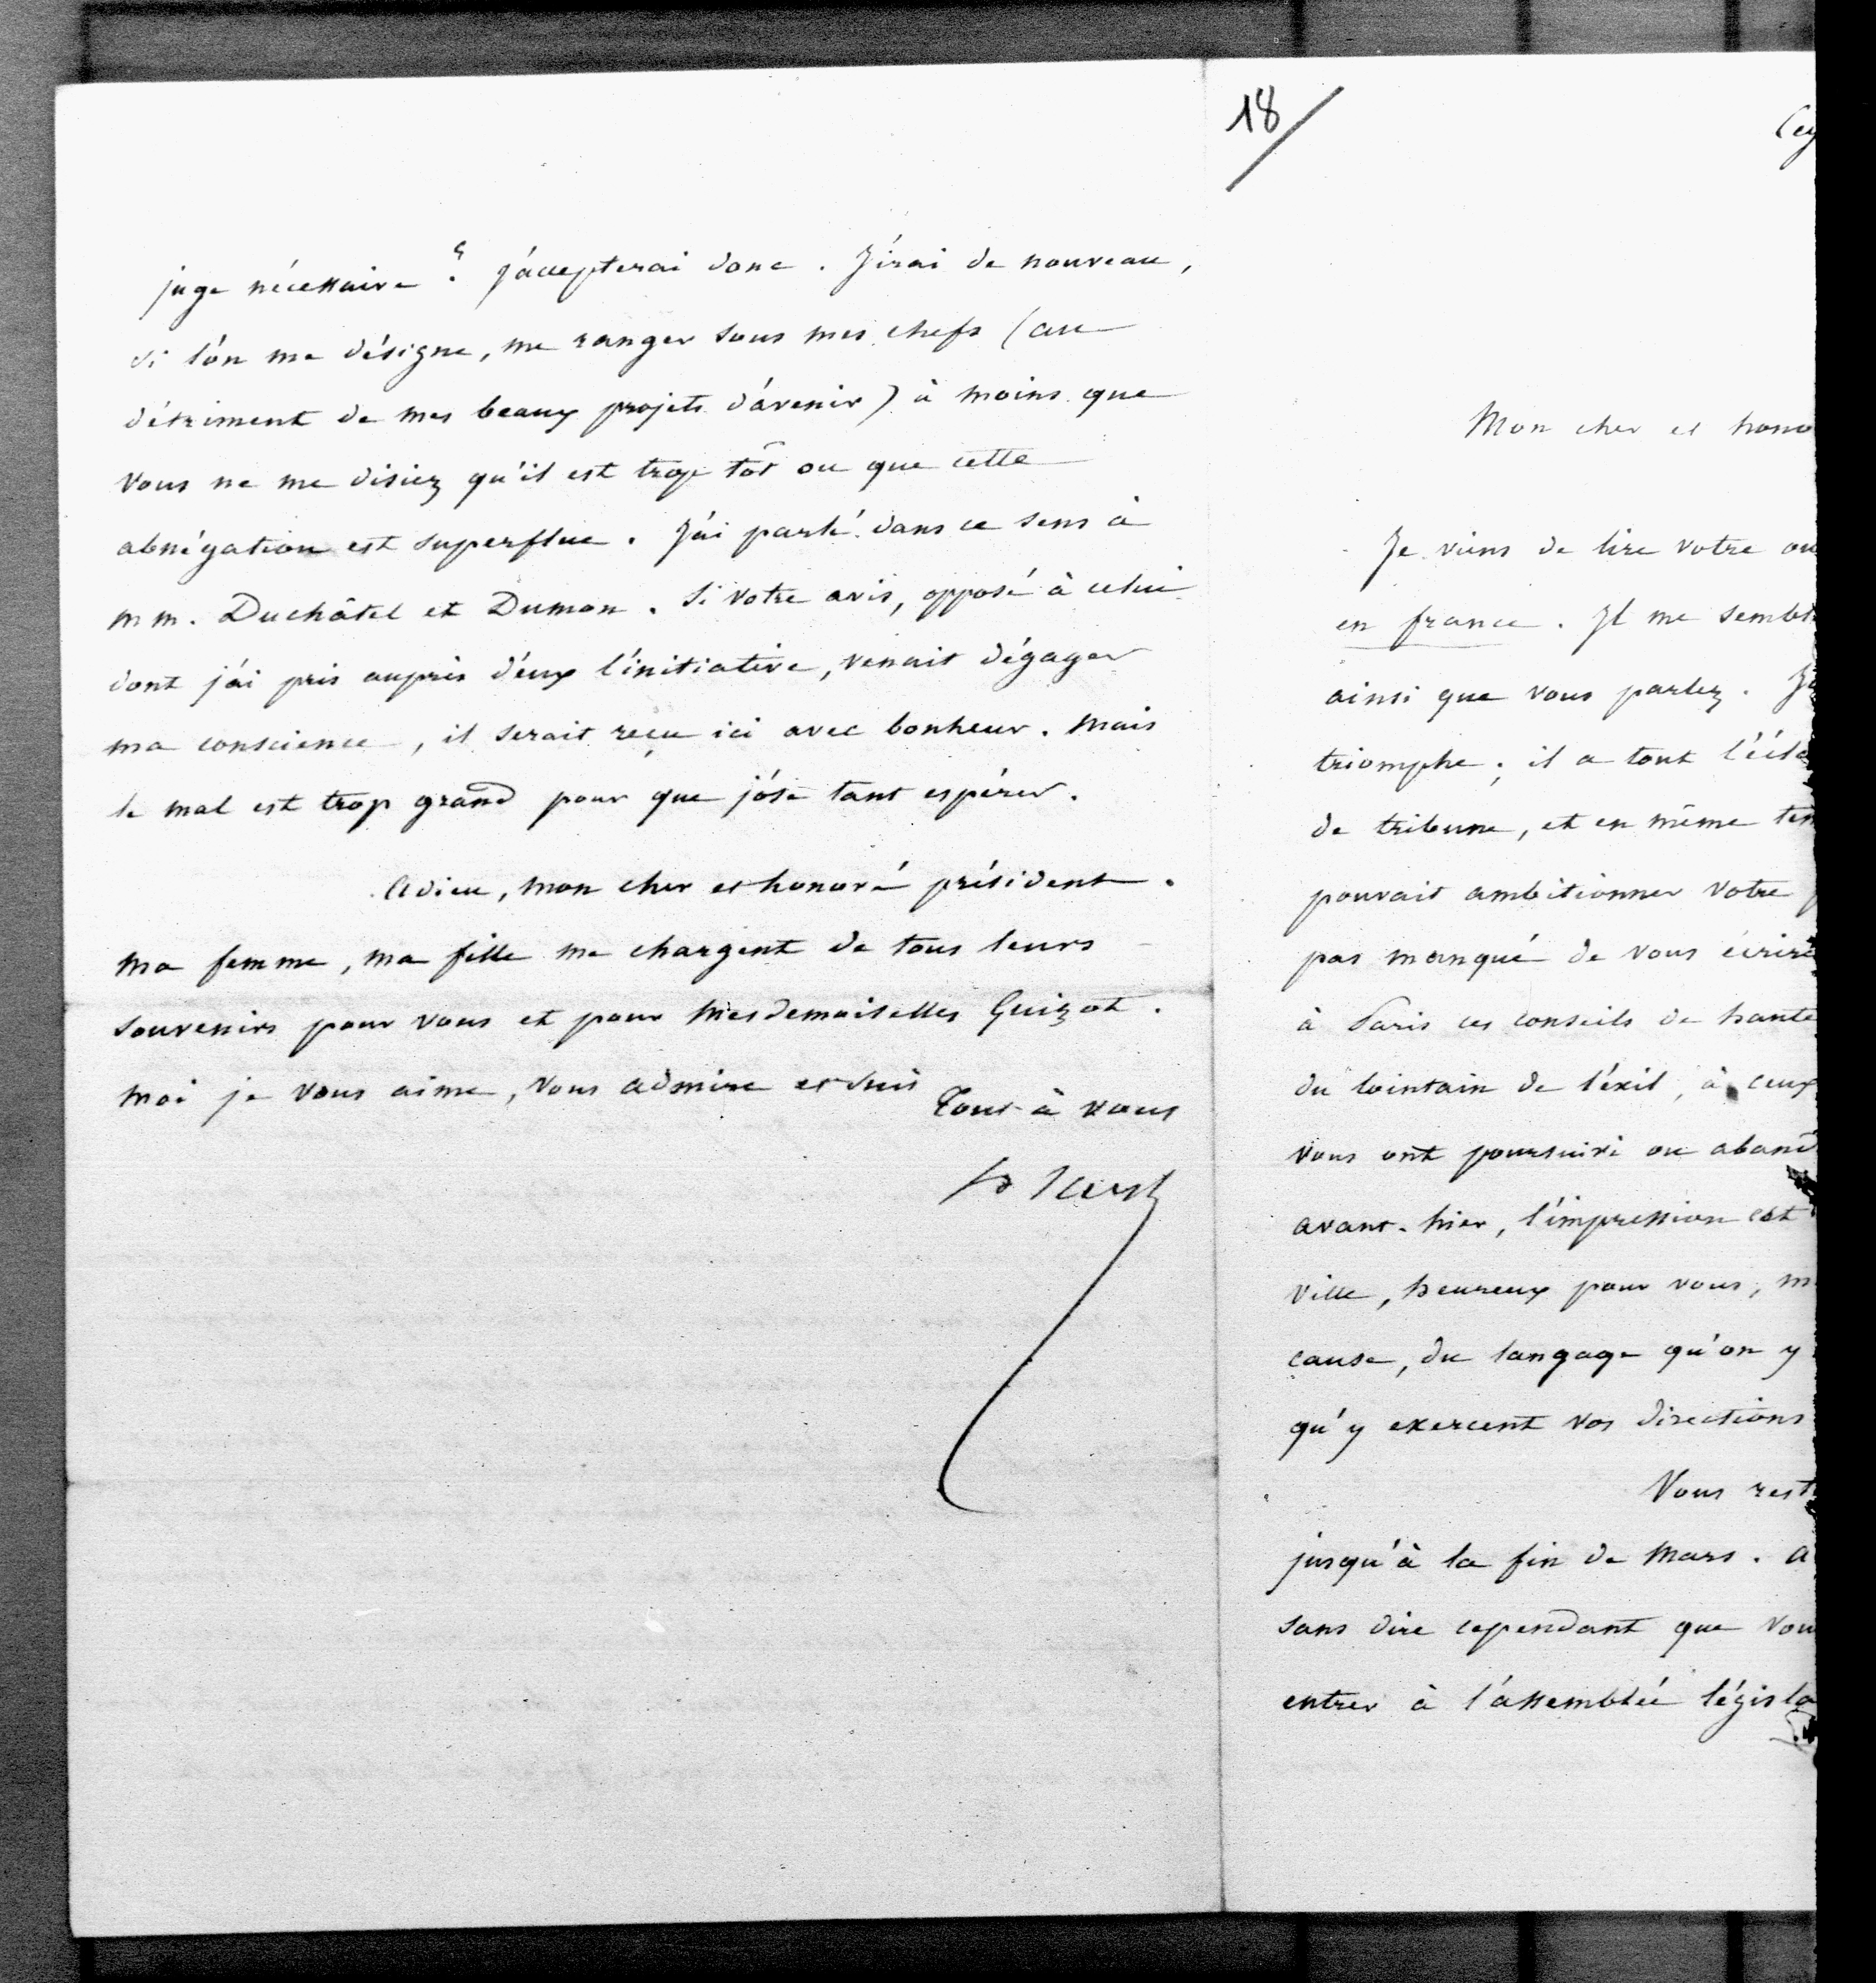 juge nécessaire ? j'accepterai donc. J'irai de nouveau,
si l'on me désigne, me ranger sous mes chefs (au
détriment de mes beaux projets d'avenir) à moins que
vous ne me disiez qu'il est trop tôt ou que cette
abnégation est superflue. J'ai parlé dans ce sens à
mm. Duchâtel et Dumon. Si votre avis, opposé à celui
dont j'ai pris auprès d'eux l'initiative, venait dégager
ma conscience, il serait reçu ici avec bonheur. Mais
le mal est trop grand pour que j'ose tant espérer.
Adieu, mon cher et honoré président.
Ma femme, ma fille me chargent de tous leurs
souvenirs pour vous et pour Mesdemoiselles Guizot.
Moi je vous aime, vous admire et suis
Tout à vous
18
Mon cher et hono
Je viens de lire votre ou
en france. Il me sembl
ainsi que vous parlez.
triomphe ; il a tout l'écla
de tribune, et en même tem
pouvait ambitionner votre
pas manqué de vous écrire
à Paris ces conseils de haute
du lointain de l'éxil, à ceux
vous ont poursuivi ou aband
avant-hier, l'impression est
ville, heureux pour vous, m
cause, du langage qu'on y
qu'y exercent vos directions
Vous rest
jusqu'à la fin de Mars. A
sans dire cependant que vou
entrer à l'assemblée législa